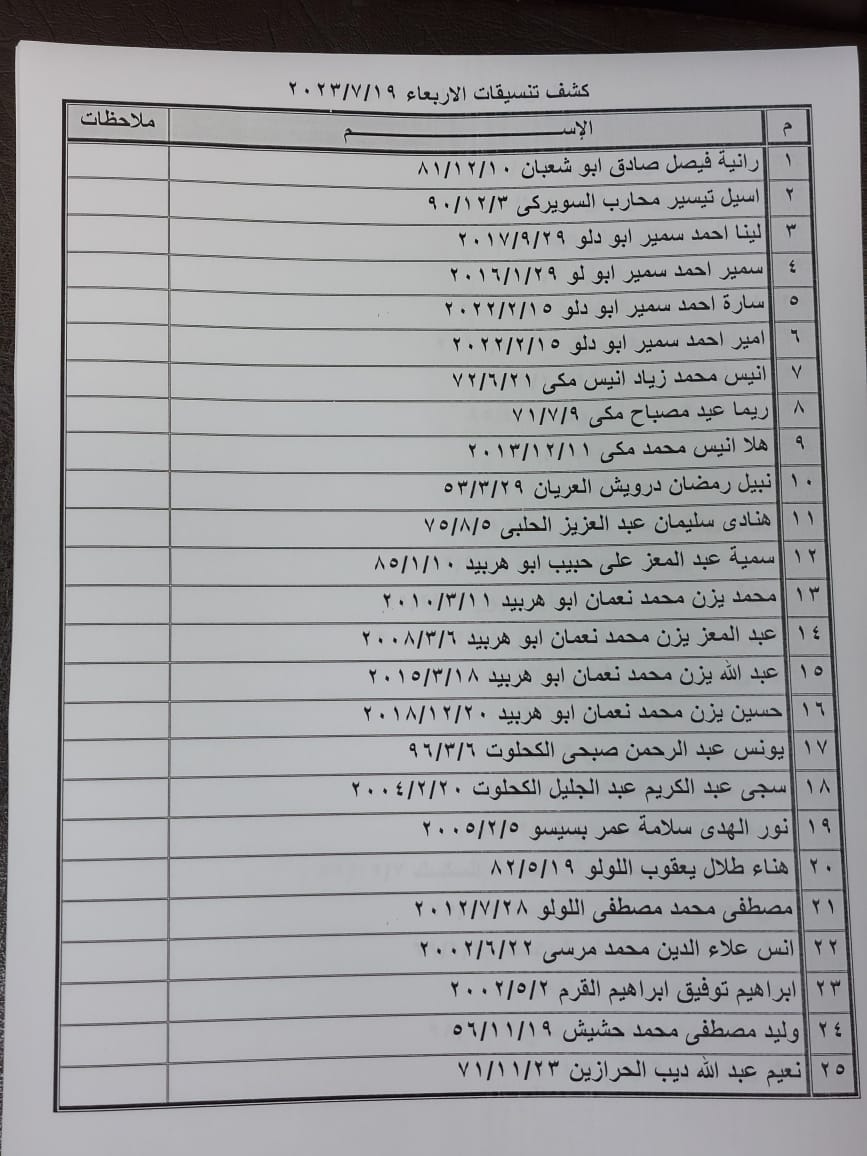 كشف تنسيقات الاربعاء ٢٠٢٣/٧/١٩
م الإســـــــــــــــم ملاحظات
١ رانية فيصل صادق ابو شعبان ٨١/١٢/١٠
٢ اسيل تيسير محارب السويركى ٩٠/١٢/٣
٣ لينا احمد سمير ابو دلو ٢٠١٧/٩/٢٩
٤ سمير احمد سمير ابو لو ٢٠١٦/١/٢٩
٥ سارة احمد سمير ابو دلو ٢٠٢٢/٢/١٥
٦ امير احمد سمير ابو دلو ٢٠٢٢/٢/١٥
٧ انيس محمد زياد انيس مكى ٧٢/٦/٢١
٨ ريما عيد مصباح مكى ٧١/٧/٩
٩ هلا انيس محمد مكى ٢٠١٣/١٢/١١
١٠ نبيل رمضان درويش العريان ٥٣/٣/٢٩
١١ هنادى سليمان عبد العزيز الحلبى ٧٥/٨/٥
١٢ سمية عبد المعز على حبيب ابو هربيد ٨٥/١/١٠
١٣ محمد يزن محمد نعمان ابو هربيد ٢٠١٠/٣/١١
١٤ عبد المعز يزن محمد نعمان ابو هربيد ٢٠٠٨/٣/٦
١٥ عبد الله يزن محمد نعمان ابو هربيد ٢٠١٥/٣/١٨
١٦ حسين يزن محمد نعمان ابو هربيد ٢٠١٨/١٢/٢٠
١٧ يونس عبد الرحمن صبحى الكحلوت ٩٦/٣/٦
١٨ سجى عبد الكريم عبد الجليل الكحلوت ٢٠٠٤/٢/٢٠
١٩ نور الهدى سلامة عمر بسيسو ٢٠٠٥/٢/٥
٢٠ هناء طلال يعقوب اللولو ٨٢/٥/١٩
٢١ مصطفى محمد مصطفى اللولو ٢٠١٢/٧/٢٨
٢٢ انس علاء الدين محمد مرسى ٢٠٠٢/٦/٢٢
٢٣ ابراهيم توفيق ابراهيم القرم ٢٠٠٢/٥/٢
٢٤ وليد مصطفى محمد حشيش ٥٦/١١/١٩
٢٥ نعيم عبد الله ديب الحرازين ٧١/١١/٢٣